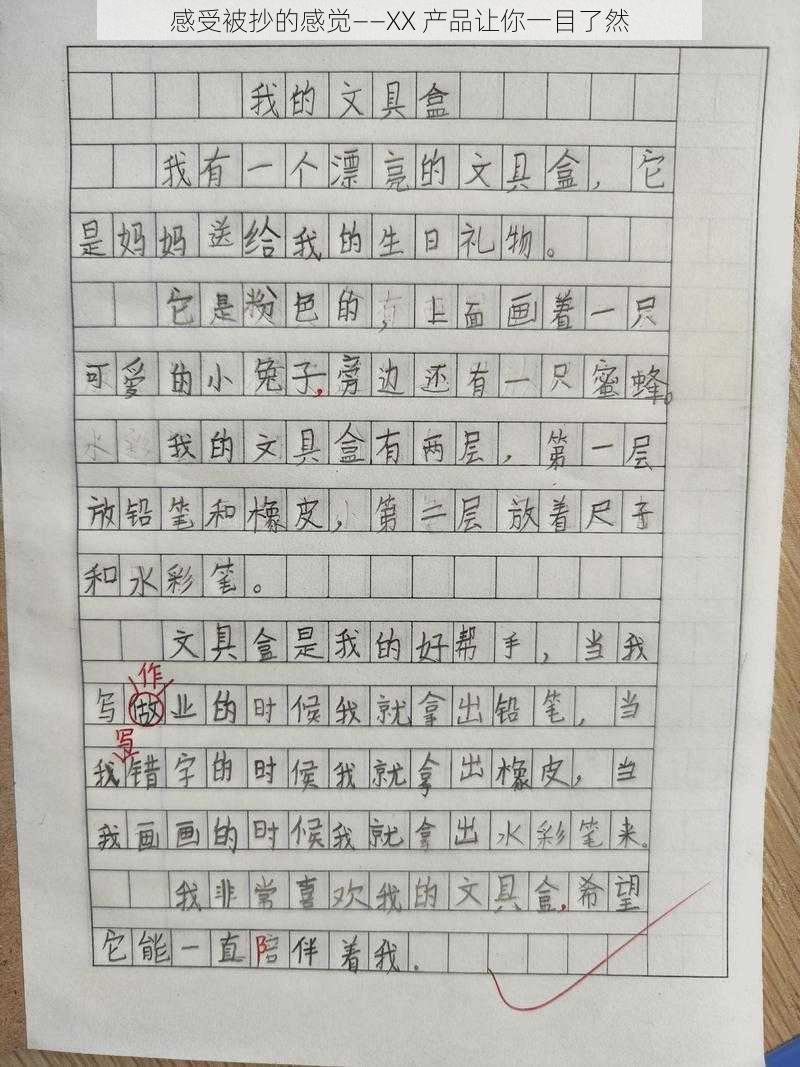 感受被抄的感觉——XX 产品让你一目了然
我的文具盒
我有一个漂亮的文具盒，它
是妈妈送给我的生日礼物。
它是粉色的，上面画着一只
可爱的小兔子，旁边还有一只蜜蜂。
我的文具盒有两层，第一层
放铅笔和橡皮，第二层放着尺子
和水彩笔。
文具盒是我的好帮手，当我
作
写做业的时候我就拿出铅笔，当
写
我错字的时候我就拿出橡皮，当
我画画的时候我就拿出水彩笔来。
我非常喜欢我的文具盒，希望
它能一直陪伴着我.